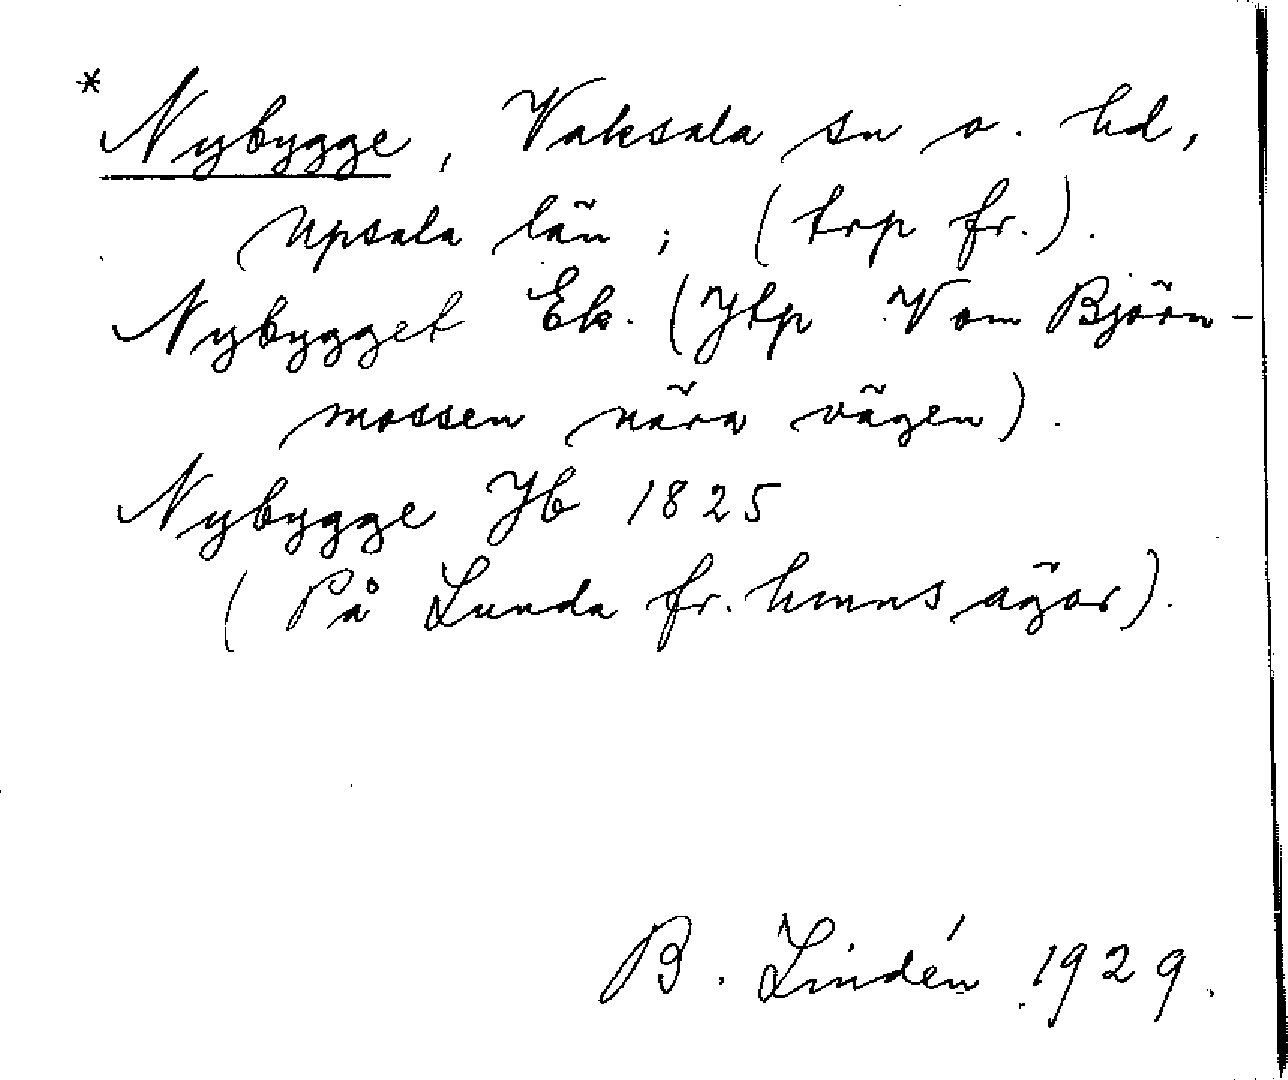 * Nybygge, Vaksala sn o. hd,
Upsala län; (trp fr.).
Nybygget Ek. (Jtp V om Björn-
mossen nära vägen).
Nybygge Jb 1825
(På Lunda fr. hmns ägor).
B. Lindén 1929.